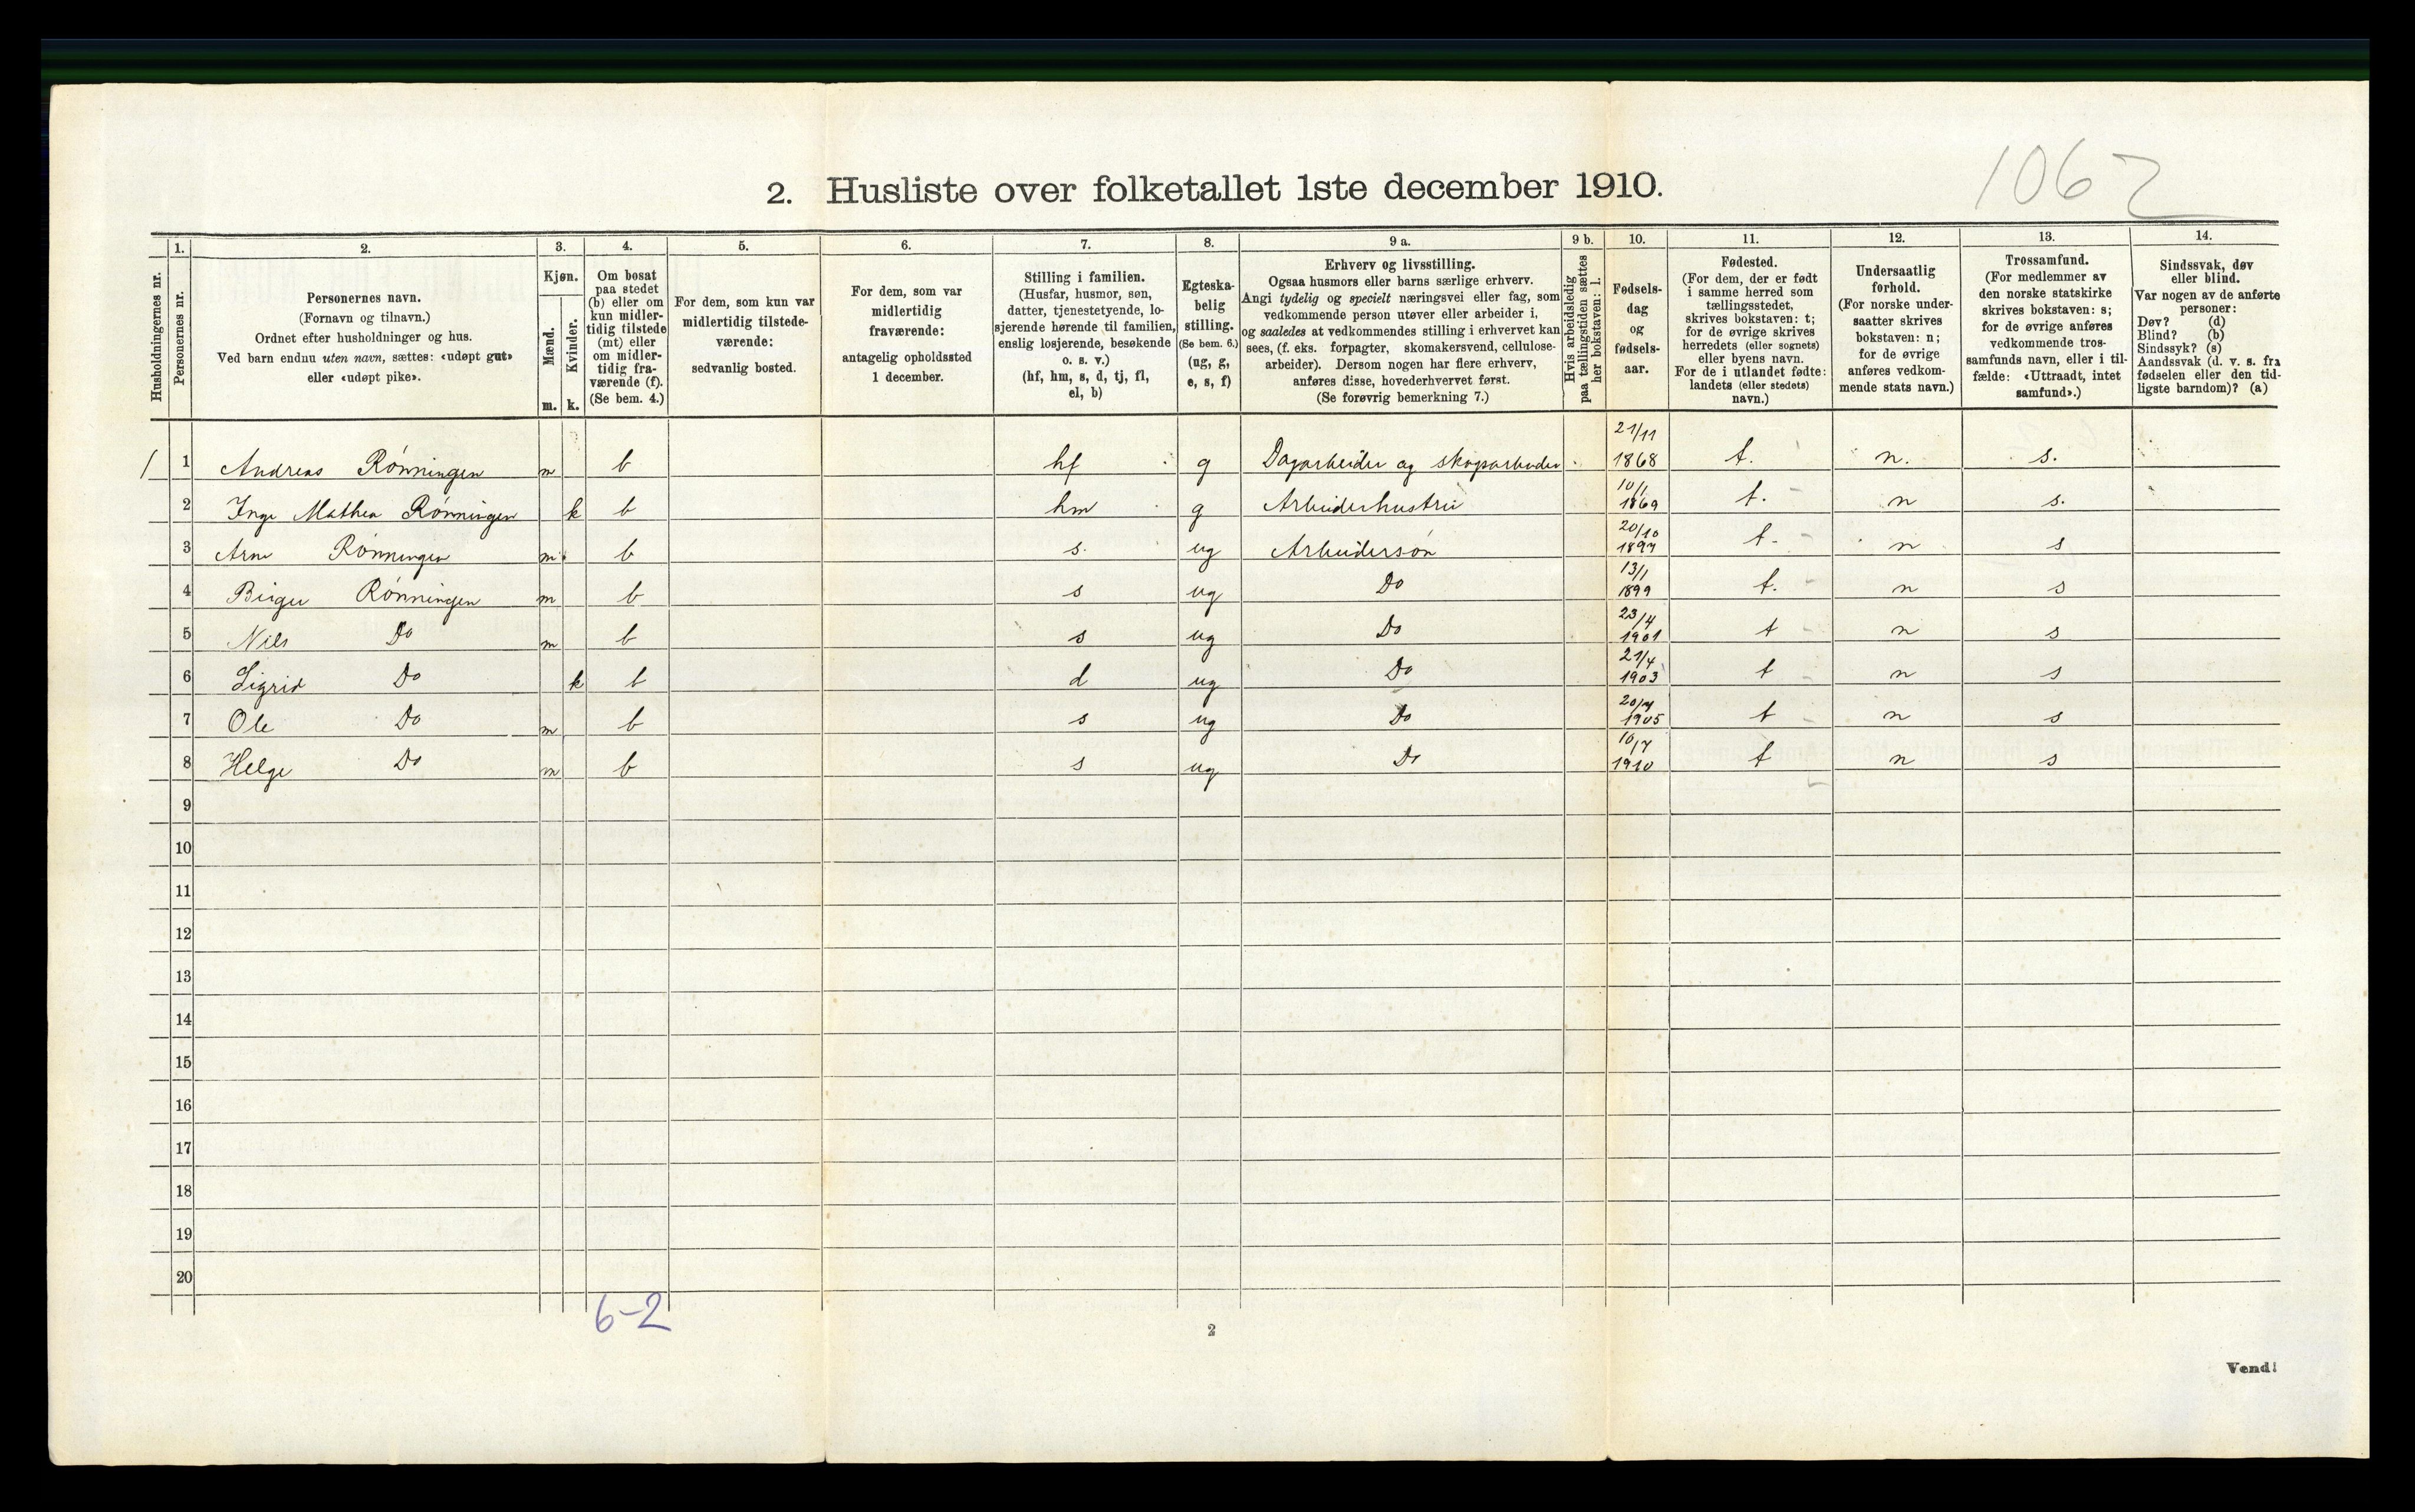 1062
2. Husliste over folketallet 1ste december 1910.
Husholdningernes nr.
1. Personernes nr.
2. Personernes navn.
(Fornavn og tilnavn.)
Ordnet efter husholdninger og hus.
Ved barn endnu uten navn, sættes: «udøpt gut»
eller «udøpt pike».
3. Kjøn.
Mænd. m.
Kvinder. k.
4. Om bosat
paa stedet
(b) eller om
kun midler-
tidig tilstede
(mt) eller
om midler-
tidig fra-
værende (f).
(Se bem. 4.)
5. For dem, som kun var
midlertidig tilstede-
værende:
sedvanlig bosted.
6. For dem, som var
midlertidig
fraværende:
antagelig opholdssted
1 december.
7. Stilling i familien.
(Husfar, husmor, søn,
datter, tjenestetyende, lo-
sjerende hørende til familien,
enslig losjerende, besøkende
o. s. v.)
(hf, hm, s, d, tj, fl,
el, b)
8. Egteska-
belig
stilling.
(Se bem. 6.)
(ug, g,
e, s, f)
9 a. Erhverv og livsstilling.
Ogsaa husmors eller barns særlige erhverv.
Angi tydelig og specielt næringsvei eller fag, som
vedkommende person utøver eller arbeider i,
og saaledes at vedkommendes stilling i erhvervet kan
sees, (f. eks. forpagter, skomakersvend, cellulose-
arbeider). Dersom nogen har flere erhverv,
anføres disse, hovederhvervet først.
(Se forøvrig bemerkning 7.)
9 b. Hvis arbeidsledig
paa tællingstiden sættes
her bokstaven: l.
10. Fødsels-
dag
og
fødsels-
aar.
11. Fødested.
(For dem, der er født
i samme herred som
tællingsstedet,
skrives bokstaven: t;
for de øvrige skrives
herredets (eller sognets)
eller byens navn.
For de i utlandet fødte:
landets (eller stedets)
navn.)
12. Undersaatlig
forhold.
(For norske under-
saatter skrives
bokstaven: n;
for de øvrige
anføres vedkom-
mende stats navn.)
13. Trossamfund.
(For medlemmer av
den norske statskirke
skrives bokstaven: s;
for de øvrige anføres
vedkommende tros-
samfunds navn, eller i til-
fælde: «Uttraadt, intet
samfund».)
14. Sindssvak, døv
eller blind.
Var nogen av de anførte
personer:
Døv? (d)
Blind? (b)
Sindssyk? (s)
Aandssvak (d. v. s. fra
fødselen eller den tid-
ligste barndom)? (a)
1 1 Andreas Rönningen m b hf g Dagarbeider og skogsarbeider 21/11 1868 t. n. s.
2 Inga Mathea Rönningen k b hm g Arbeiderhustru 10/1 1869 t. n s.
3 Arne Rönningen m b s. ug Arbeidersön 20/10 1897 t. n s
4 Birger Rönningen m b s ug Do 13/1 1899 t. n s
5 Nils Do m b s ug Do 23/4 1901 t n s
6 Sigrid Do k b d ug Do 21/4 1903 t n s
7 Ole Do m b s ug Do 1905 t n s
8 Helge Do m b s ug Do 10/7 1910 t n s
9
10
11
12
13
14
15
16
17
18
19
20
6-2
2
Vend!